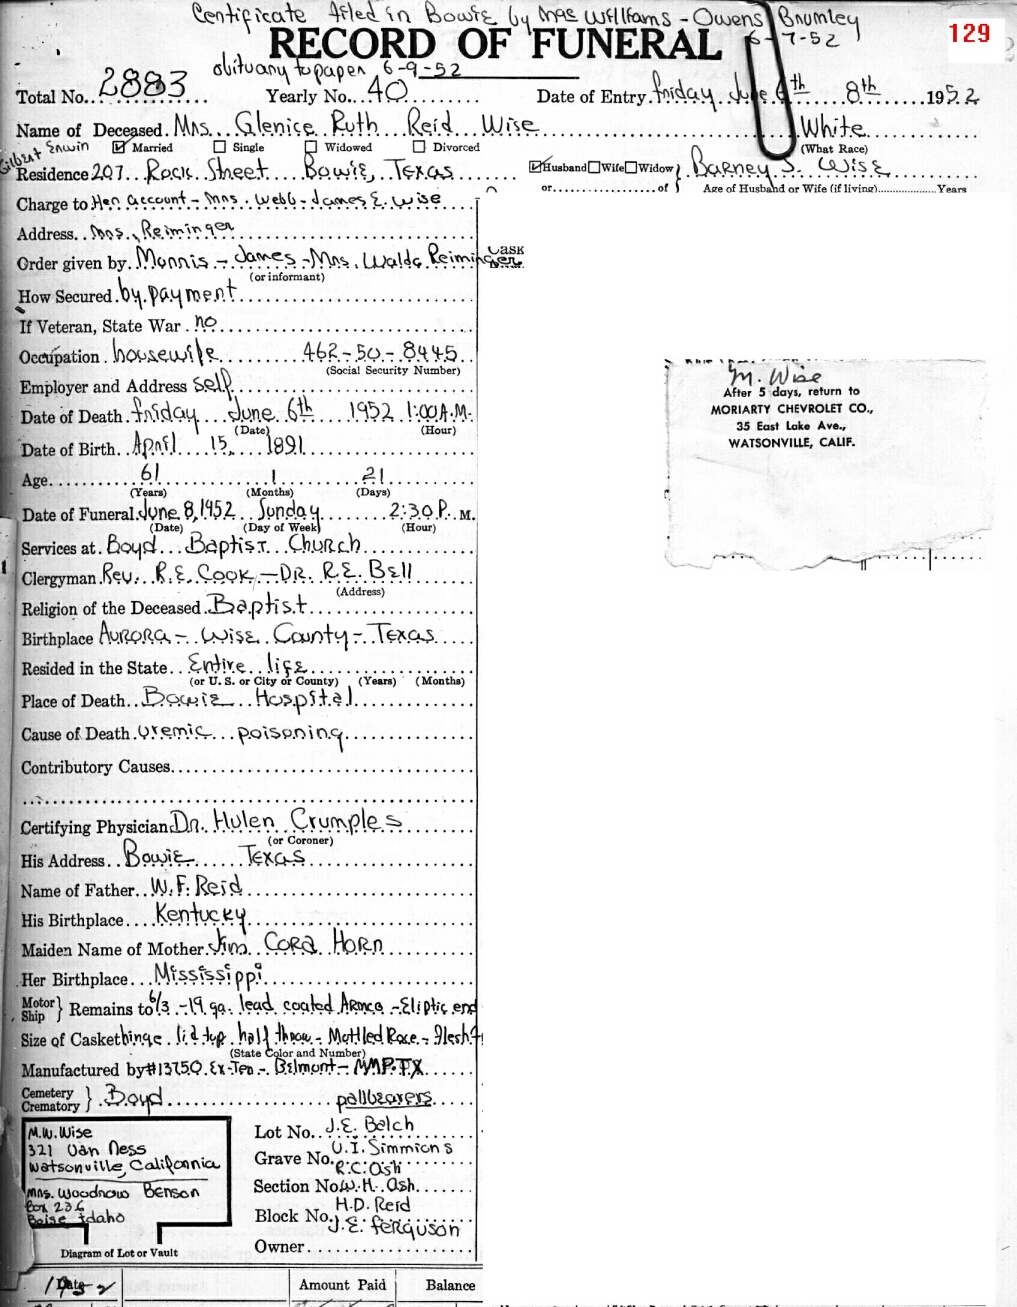 Certificate filed in Bowie by Mrs Williams - Owens Brumley
6-7-52
129
RECORD OF FUNERAL
obituary to paper 6-9-52
Total No. 2883 Yearly No. 40 Date of Entry. friday June 6th 8th 1952
Name of Deceased. Mrs. Glenice Ruth Reid Wise White
(What Race)
Married Single Widowed Divorced
Gilbert Erwin
Residence 207 Rock Street Bowie, Texas Husband Wife Widow Barney S. Wise
or of Age of Husband or Wife (if living) Years
Charge to Her Account - Mrs. Webb - James E. Wise
Address. Mrs. Reiminger
Order given by. Morris - James - Mrs. Waldo Reiminger
(or informant)
How Secured. by payment
If Veteran, State War. no
Occupation. housewife 462-50-8445
(Social Security Number)
Employer and Address self
Date of Death. friday June 6th 1952 1:00 A.M.
(Date) (Hour)
Date of Birth. April 15, 1891
Age 61 1 21
(Years) (Months) (Days)
Date of Funeral. June 8, 1952 Sunday 2:30 P. M.
(Date) (Day of Week) (Hour)
Services at. Boyd Baptist Church
Clergyman. Rev. R.E. Cook - DR. R.E. Bell
(Address)
Religion of the Deceased. Baptist
Birthplace Aurora - Wise County - Texas
Resided in the State. Entire life
(or U. S. or City or County) (Years) (Months)
Place of Death. Bowie Hospital
Cause of Death. uremic poisoning
Contributory Causes
Certifying Physician. Dr. Hulen Crumples
(or Coroner)
His Address. Bowie Texas
Name of Father. W.F. Reid
His Birthplace. Kentucky
Maiden Name of Mother. Jim Cora Horn
Her Birthplace. Mississippi
Motor Ship Remains to 6/3 - 19 ga. lead coated Armco - Eliptic end
Size of Casket hinge lid top half throw - Mottled Rose - flesh
(State Color and Number)
Manufactured by #13750 Ex-Ten - Belmont -
Cemetery Crematory Boyd pallbearers
Lot No. J.E. Belch
Grave No. U.I. Simmions
R.C. Ash
Section No. W.H. Ash
H.D. Reid
Block No. J.E. ferguson
Owner
M.W. Wise
321 Van Ness
Watsonville, California
Mrs. Woodrow Benson
Box 236
Boise Idaho
Diagram of Lot or Vault
Date 1952 Amount Paid Balance
M. Wise
After 5 days, return to
MORIARTY CHEVROLET CO.,
35 East Lake Ave.,
WATSONVILLE, CALIF.